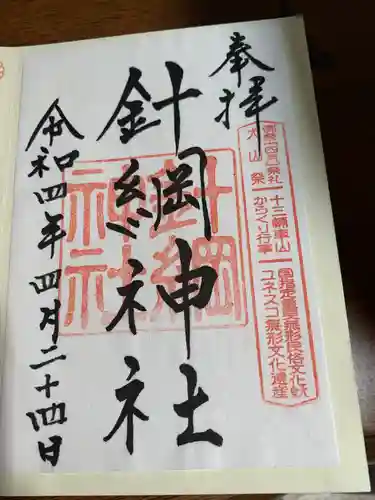 奉拝
針綱神社
令和四年四月二十四日
針綱
神社
犬山祭
御祭(四月)祭礼
十三輌車山
からくり行事
国指定重要無形民俗文化財
ユネスコ無形文化遺産